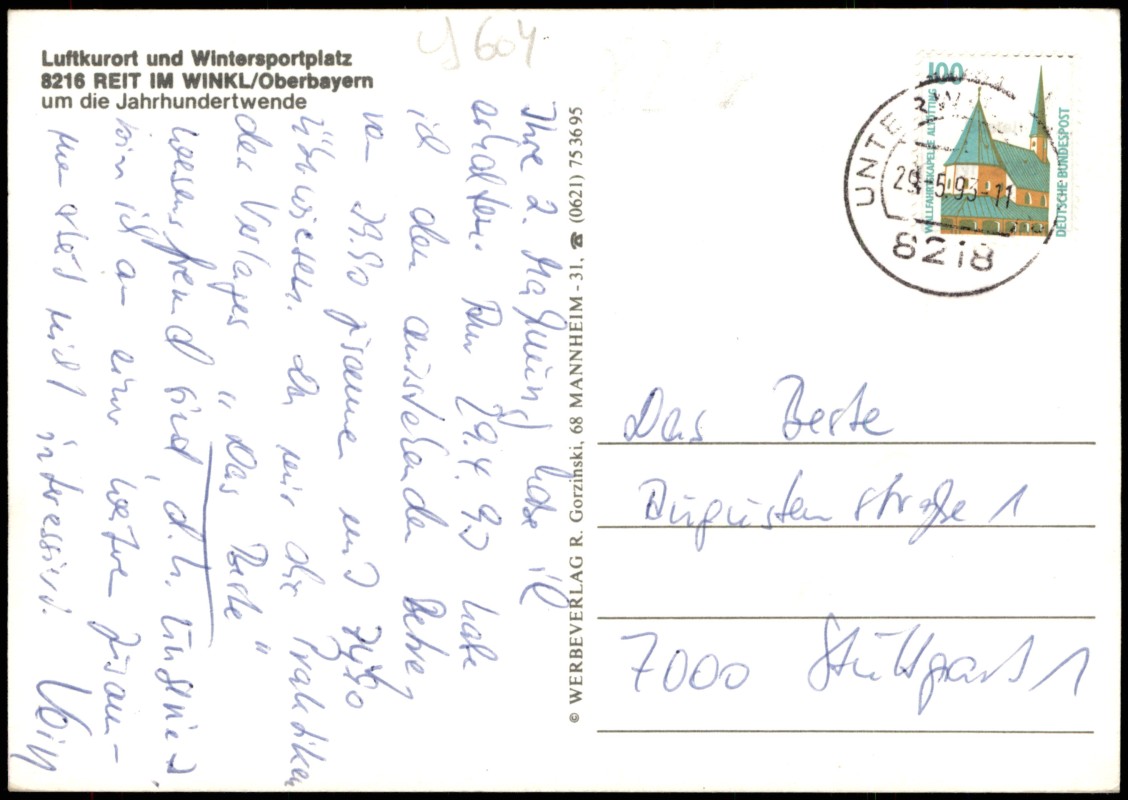 Luftkurort und Wintersportplatz
8216 REIT IM WINKL/Oberbayern
um die Jahrhundertwende
604
Ihre 2. Mahnung habe ich
erhalten. Am 29.4.93 habe
ich den ausstehenden Betrag
von 39.80 zusammen mit
überwiesen. Da mir die Praktiken
des Verlages "Das Beste"
wesensfremd sind, d.h.
bin ich an einer weiteren Zusam-
menarbeit nicht interessiert.
© WERBEVERLAG R. Gorzinski, 68 MANNHEIM - 31, ☎ (0621) 753695
100
WALLFAHRTSKAPELLE ALTÖTTING
DEUTSCHE BUNDESPOST
UNTERW
29.-5.93-11
8218
Das Beste
Augustenstraße 1
7000 Stuttgart 1